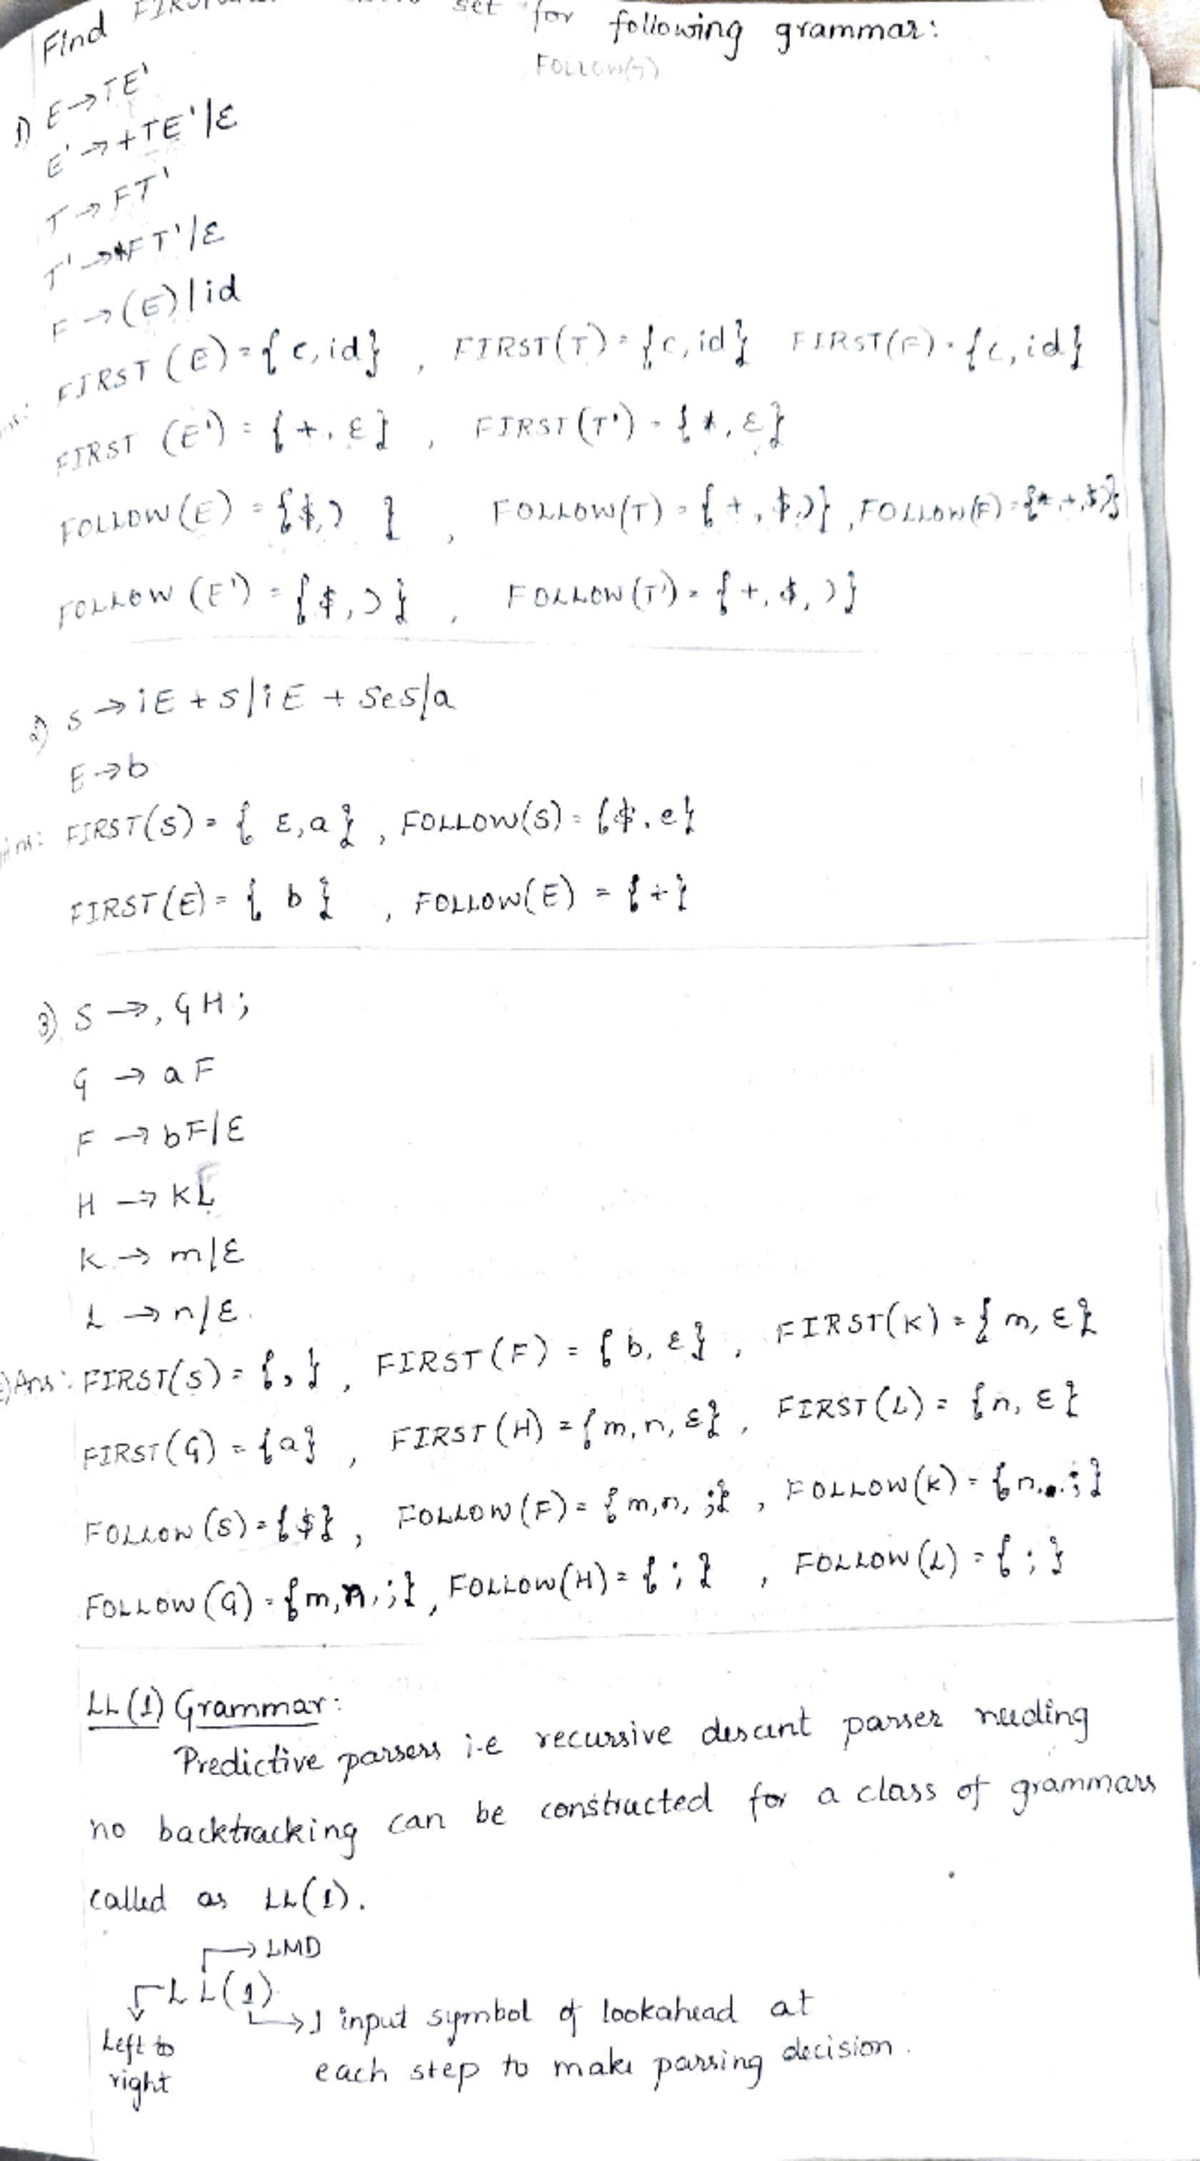 Find FIRST set for following grammar:
FOLLOW(S)
1) E→TE'
E'→+TE'|ε
T→FT'
T'→*FT'|ε
F→(E)|id
FIRST(E)={(,id}, FIRST(T)={(,id} FIRST(F)={(,id}
FIRST(E')={+,ε}, FIRST(T')={*,ε}
FOLLOW(E)={$,) }, FOLLOW(T)={+,$,)}, FOLLOW(F)={*,+,$)}
FOLLOW(E')={$,)}, FOLLOW(T')={+,$,)}
2) S→iE+S|iE+SeS/a
E→b
Ans: FIRST(S)={ ε,a}, FOLLOW(S)={$,e}
FIRST(E)={ b }, FOLLOW(E)={+}
3) S→,GH;
G→aF
F→bF|ε
H→KL
K→m|ε
L→n/ε.
Ans: FIRST(S)={,}, FIRST(F)={b,ε}, FIRST(K)={m,ε}
FIRST(G)={a}, FIRST(H)={m,n,ε}, FIRST(L)={n,ε}
FOLLOW(S)={$}, FOLLOW(F)={m,n,;}, FOLLOW(K)={n,;}
FOLLOW(G)={m,n,;}, FOLLOW(H)={;}, FOLLOW(L)={;}
LL(1) Grammar:
Predictive parsers i.e recursive descent parser needing
no backtracking can be constructed for a class of grammars
called as LL(1).
→LMD
LL(1)
→1 input symbol of lookahead at
Left to
each step to make parsing decision.
right